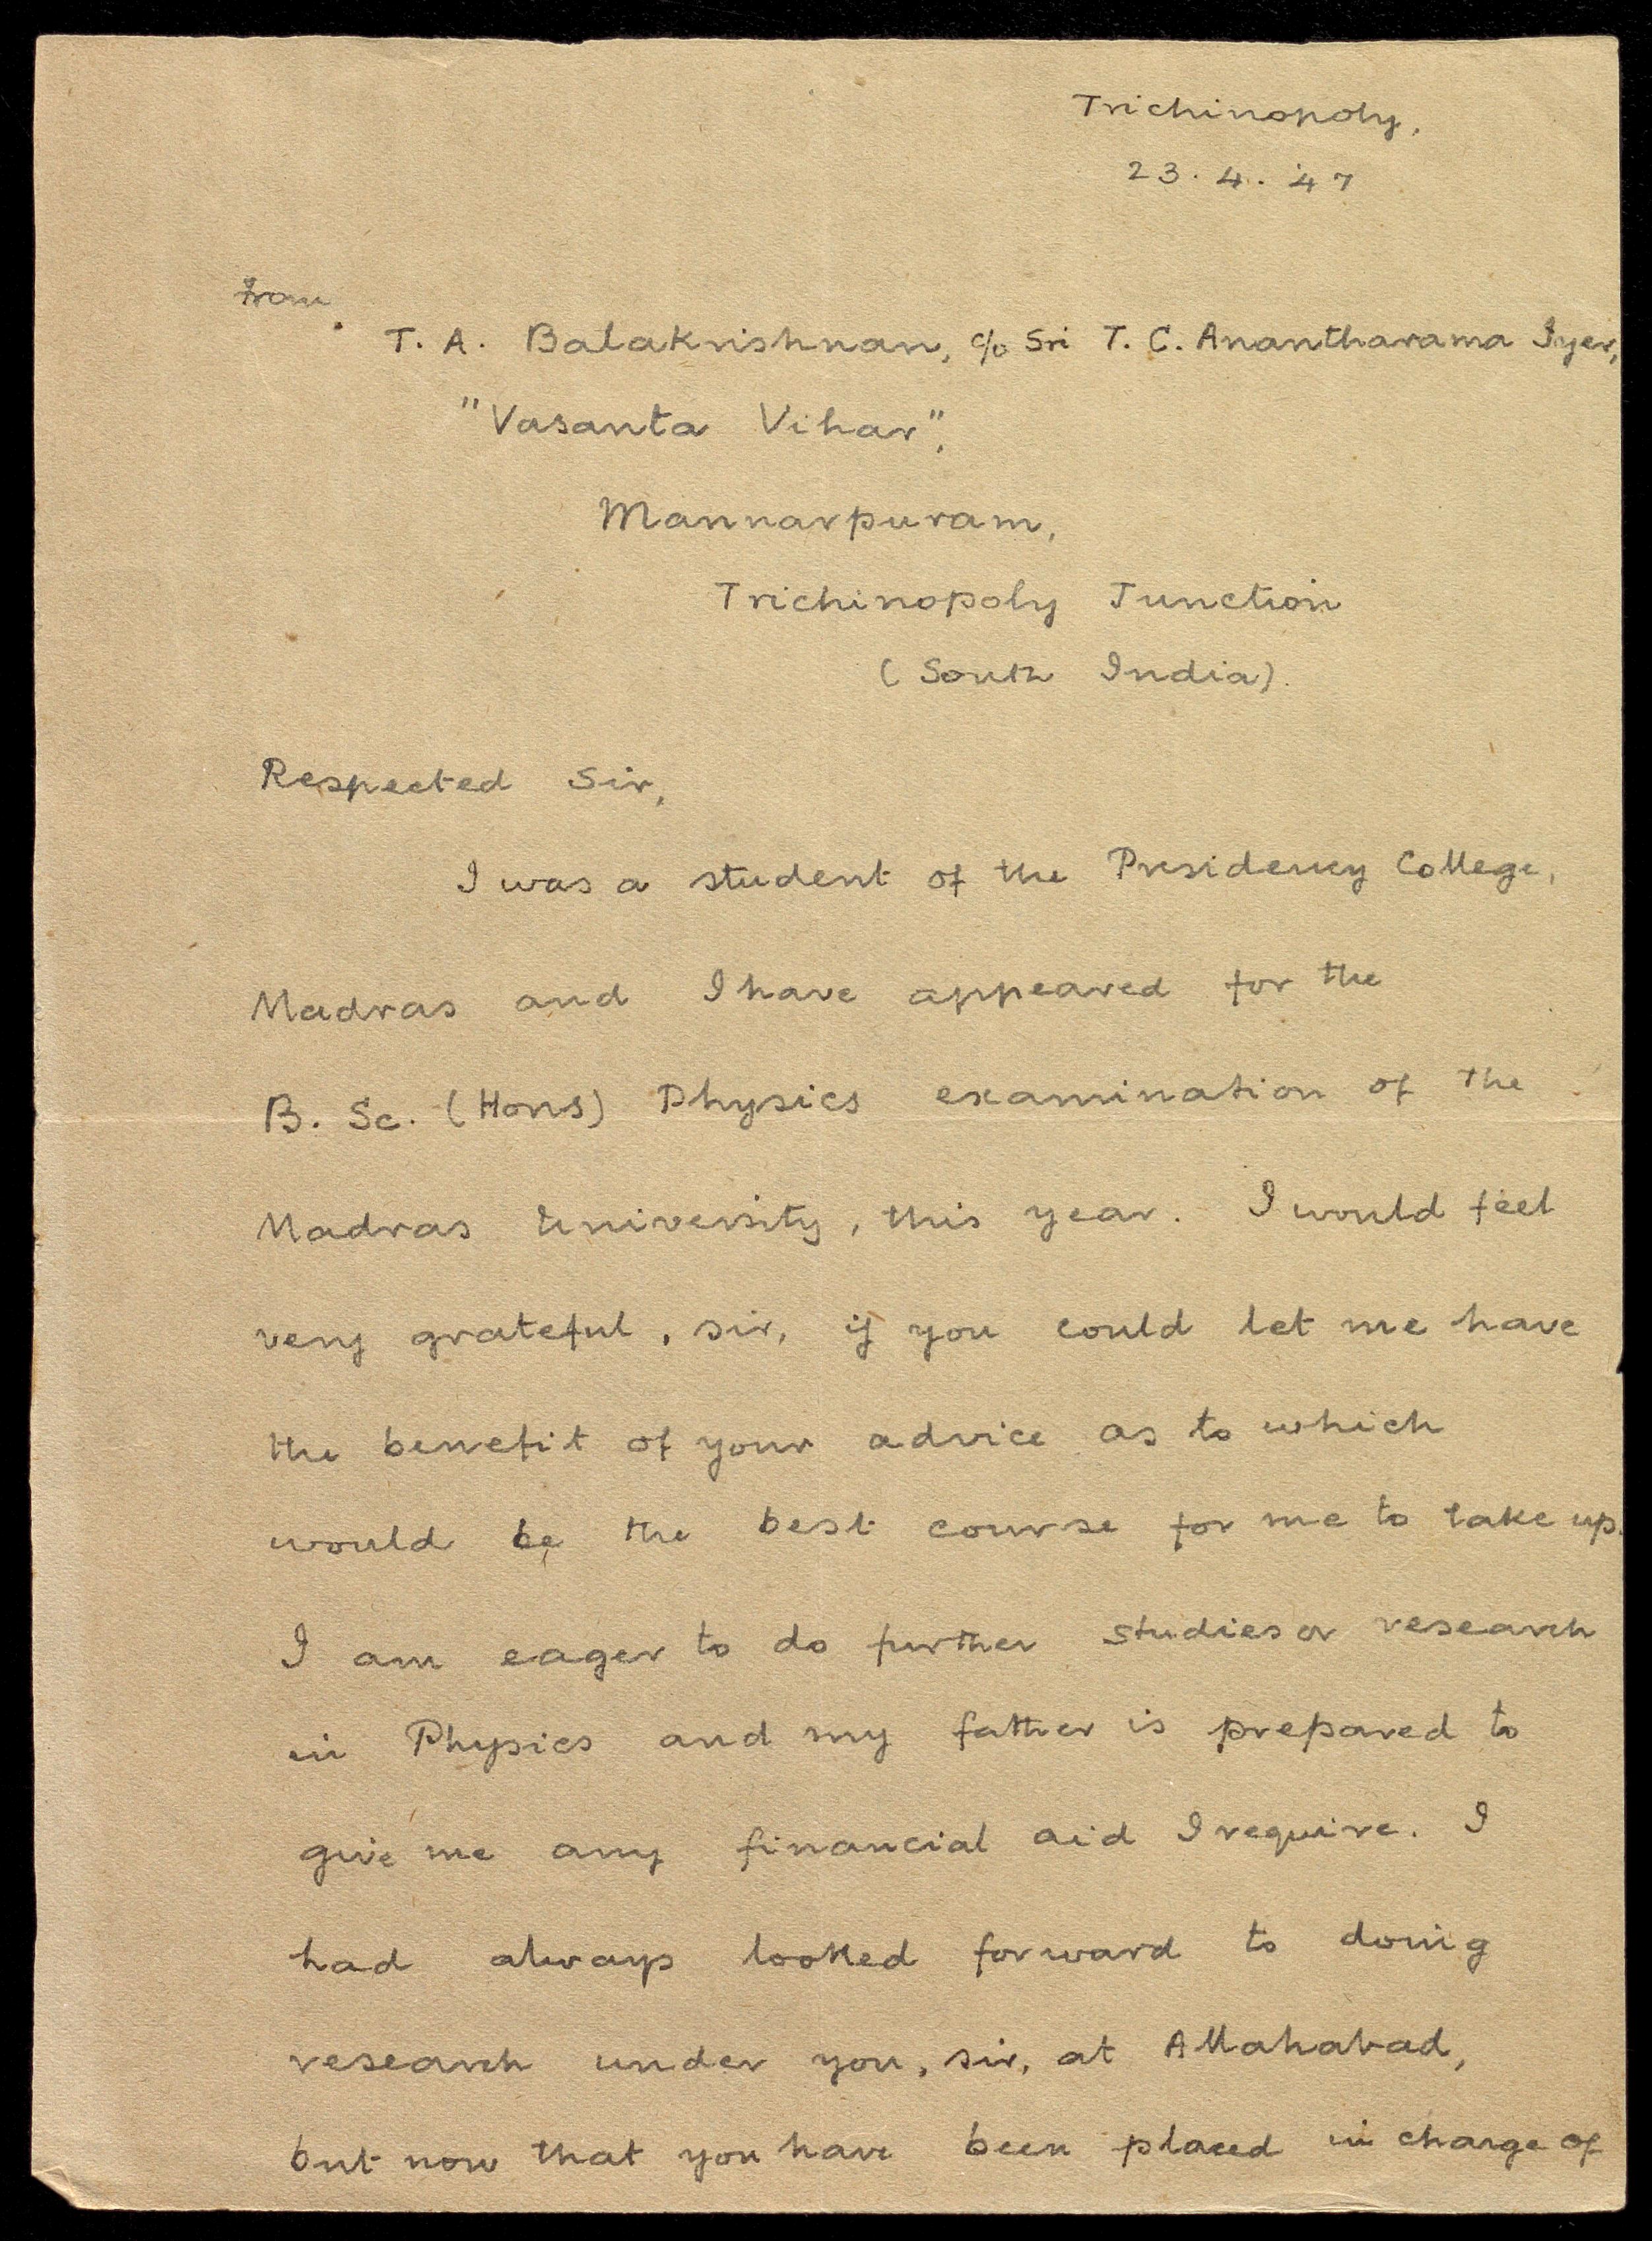 Trichinopoly,
23.4.47
from
T. A. Balakrishnan, c/o Sri T. C. Anantharama Iyer,
"Vasanta Vihar",
Mannarpuram,
Trichinopoly Junction
(South India).
Respected Sir,
I was a student of the Presidency College,
Madras and I have appeared for the
B. Sc. (Hons) Physics examination of the
Madras University, this year. I would feel
very grateful, sir, if you could let me have
the benefit of your advice as to which
would be the best course for me to take up.
I am eager to do further studies or research
in Physics and my father is prepared to
give me any financial aid I require. I
had always looked forward to doing
research under you, sir, at Allahabad,
but now that you have been placed in charge of